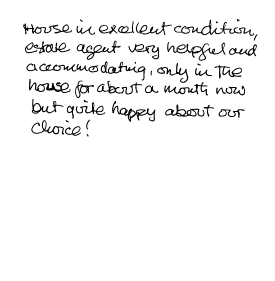 House in excellent condition,
estate agent very helpful and
accommodating, only in the
house for about a month now
but quite happy about our
choice!